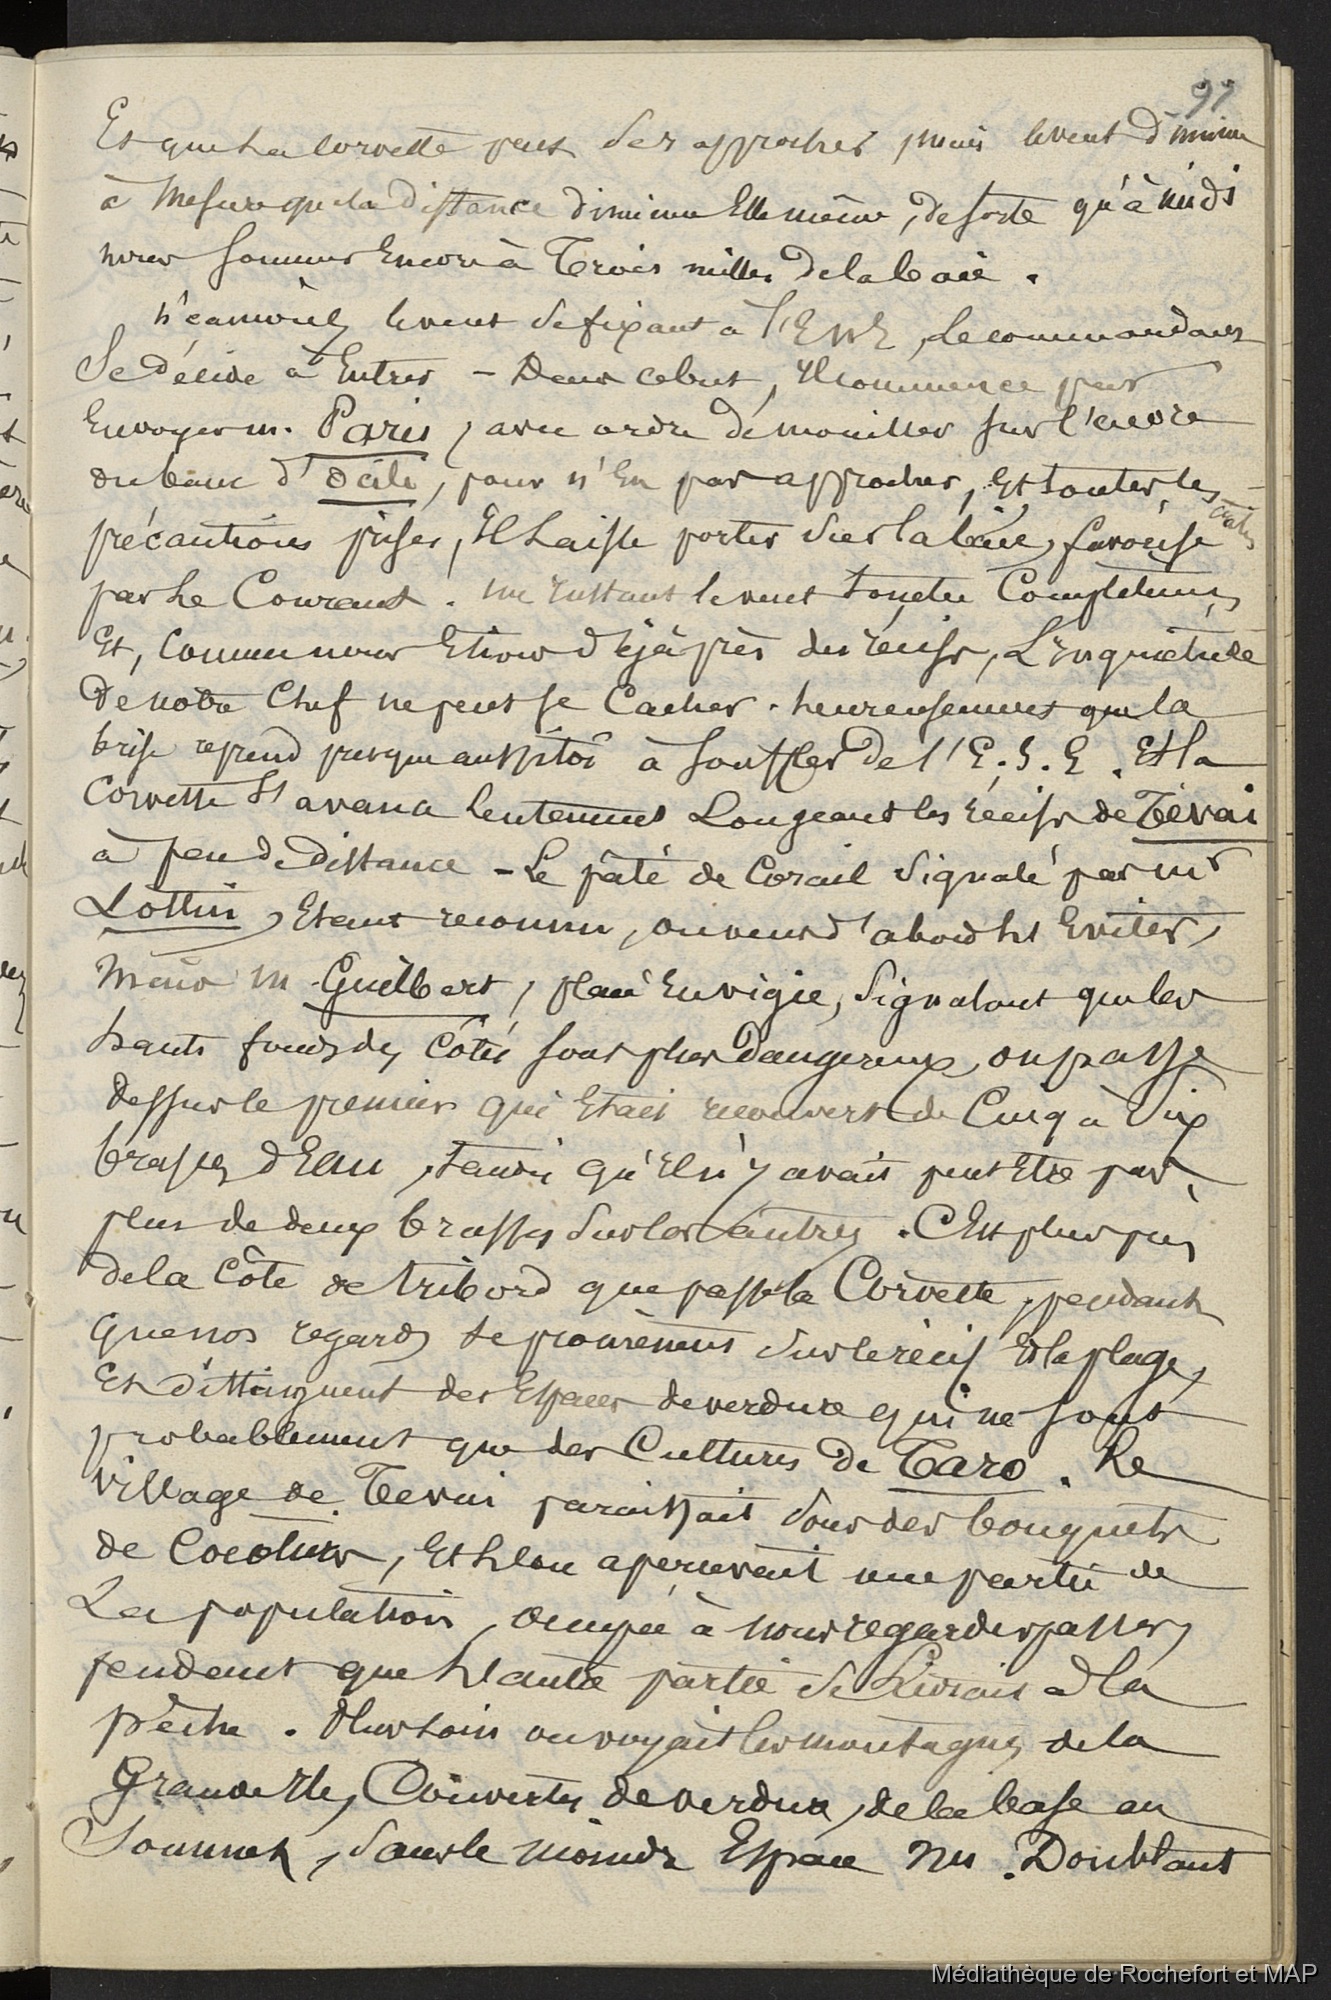 97
Et que La corvette peut s'en approcher mais levent diminue
à Mesure que la distance diminue Elle même, de sorte qu'à midi
nous sommes Encore à Trois milles de la baie.
n'éamoins levent se fixant à l'ENE, Le commandant
Se décide à Entrer - Dans cebut, Il commence par
Envoyer m. Paris, avec ordre de mouiller sur l'accore
du banc d'Dili, pour n'En pas approcher, Et toutes les
précautions prises, Il Laisse porter sur la baie, favorisé
par Le Courant. un Instant levent tombe Complètement,
Et, Comme nous Etions déjà près des récifs, L'Inquiétude
De notre Chef ne peut se Cacher. heureusement que la
brise reprend presqu'aussitôt à souffler de l'E.S.E. Et la
Corvette s'avança lentement Longeant les récifs de Tévai
à peu de distance - Le pâté de Corail signalé par mr
Lottin, Etant reconnu, on veut d'abord les Eviter,
Mais m. Guilbert, placé En vigie, signalant que les
hauts fonds des côtés sont plus dangereux, on passe
dessus le premier qui Etait recouvert de Cinq à Six
brasses d'Eau, tandis qu'Il n'y avait peut Etre pas
plus de deux brasses sur les autres. C'Est plus près
de la Côte de tribord que passe la Corvette, pendant
que nos regards se promènent sur le récif Et la plage,
Et distinguent des Espaces de verdure qui ne sont
probablement que des Cultures de Taro. Le
village de Tevai paraissait sous des bouquets
de Cocotiers, Et L'on apercevait une partie de
La population, occupée à nous regarder passer,
pendant que L'autre partie se Livrait à la
pêche. Plus Loin on voyait les montagnes de la
Grande Ile, Couvertes de verdure, de la base au
Sommet, sans le moindre Espace nu. Doublant
Médiathèque de Rochefort et MAP